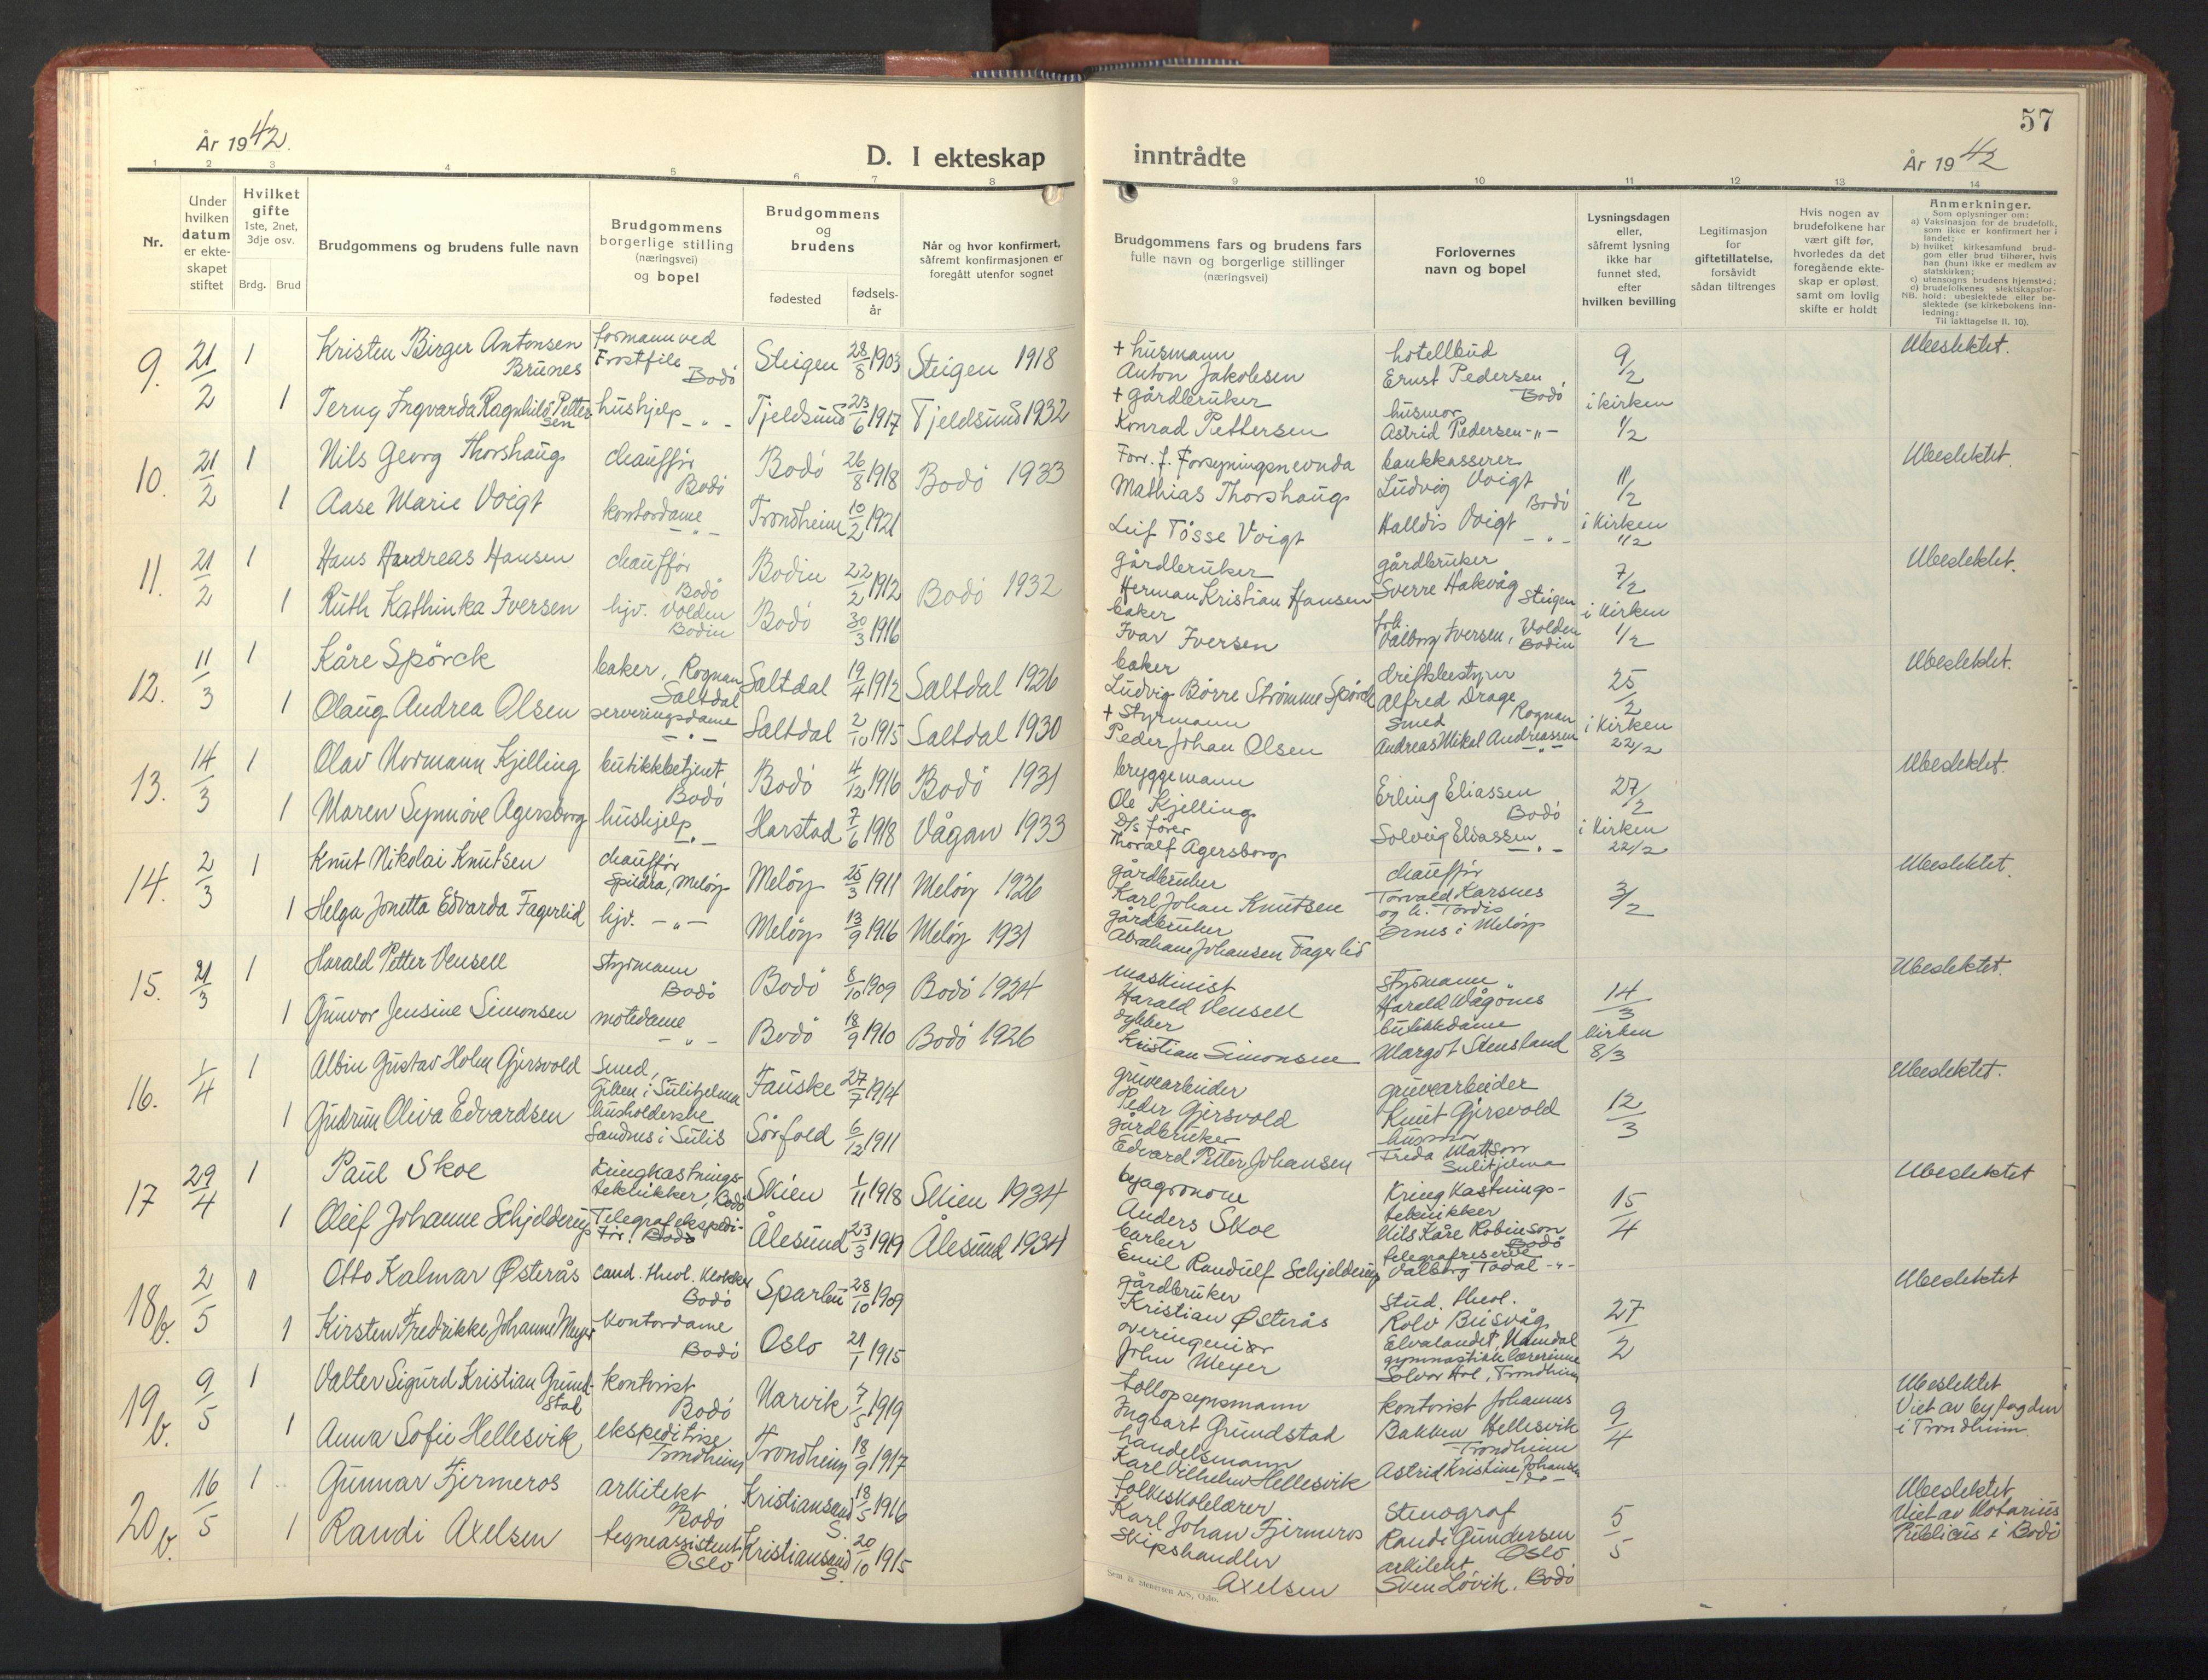 År 1942.
D. I ekteskap
1 2 3 4 5 6 7 8
Nr.
Under hvilken datum er ekteskapet stiftet
Hvilket gifte
1ste, 2net, 3dje osv.
Brdg. Brud
Brudgommens og brudens fulle navn
Brudgommens borgerlige stilling (næringsvei) og bopel
Brudgommens og brudens
fødested
fødsels-år
Når og hvor konfirmert, såfremt konfirmasjonen er foregått utenfor sognet
9. 21/2 1 Kristen Birger Antonsen Brunes formann ved Frostfile Bodö Steigen 28/8 1903 Steigen 1918
1 Terny Ingvarda Ragnhild Pettersen hushjelp -"- Tjeldsund 23/6 1917 Tjeldsund 1932
10. 21/2 1 Nils Georg Thorshaug chauffør Bodö Bodö 26/8 1918 Bodö 1933
1 Aase Marie Voigt kontordame -"- Trondheim 10/2 1921
11. 21/2 1 Hans Andreas Hansen chauffør Bodö Bodin 22/2 1912 Bodö 1932
1 Ruth Kathinka Iversen hjv. Volden Bodin Bodö 30/3 1916
12. 11/3 1 Kåre Spörck baker, Rognan Saltdal Saltdal 19/4 1912 Saltdal 1926
1 Olaug Andrea Olsen serveringsdame -"- Saltdal 2/10 1915 Saltdal 1930
13. 14/3 1 Olav Normann Kjelling butikkbetjent Bodö Bodö 4/12 1916 Bodö 1931
1 Maren Synnöve Agersborg hushjelp -"- Harstad 7/6 1918 Vågan 1933
14. 2/3 1 Knut Nikolai Knutsen chauffør Spildra, Melöy Melöy 25/3 1911 Melöy 1926
1 Helga Jonetta Edvarda Fagerlid hjv. -"- Melöy 13/9 1916 Melöy 1931
15. 21/3 1 Harald Petter Vensell styrmann Bodö Bodö 8/10 1909 Bodö 1924
1 Gunvor Jensine Simonsen motedame -"- Bodö 18/9 1910 Bodö 1926
16. 1/4 1 Albin Gustav Holm Gjersvold Smed, Giken i Sulitjelma Fauske 27/7 1914
1 Gudrun Oliva Edvardsen husholderske Sandnes i Sulis Sörfold 6/12 1911
17 29/4 1 Paul Skoe Kringkastnings-tekniker, Bodö Skien 1/11 1918 Skien 1934
1 Oleif Johanne Schjelderup Telegrafekspeditør, Bodö Ålesund 23/3 1919 Ålesund 1934
18 b. 2/5 1 Otto Kalmar Østerås cand. theol. Klokker Bodö Sparbu 28/10 1909
1 Kirsten Fredrikke Johanne Meyer Kontordame Bodö Oslo 21/1 1915
19 b. 9/5 1 Valter Sigurd Kristian Grundstad kontorist Bodö Narvik 7/5 1919
1 Anna Sofie Hellesvik ekspeditrise Trondheim Trondheim 18/9 1917
20 b. 16/5 1 Gunnar Fjermeros arkitekt Bodö Kristiansand S. 18/5 1916
1 Randi Axelsen tegneassistent Oslo Kristiansand S. 20/10 1915
57
inntrådte
År 1942
9 10 11 12 13 14
Brudgommens fars og brudens fars fulle navn og borgerlige stillinger (næringsvei)
Forlovernes navn og bopel
Lysningsdagen eller, såfremt lysning ikke har funnet sted, efter hvilken bevilling
Legitimasjon for giftetillatelse, forsåvidt sådan tiltrenges
Hvis nogen av brudefolkene har vært gift før, hvorledes da det foregående ekteskap er opløst, samt om lovlig skifte er holdt
Anmerkninger.
Som oplysninger om:
a) Vaksinasjon for de brudefolk, som ikke er konfirmert her i landet;
b) hvilket kirkesamfund brudgom eller brud tilhører, hvis han (hun) ikke er medlem av statskirken;
c) utensogns brudens hjemsted;
d) brudefolkenes slektskapsforhold: ubeslektede eller beslektede (se kirkebokens innledning:
NB.
Til iakttagelse II. 10).
+ husmann Anton Jakobsen hotellbud Ernst Pedersen Bodö 9/2 Ubeslektet.
+ gårdbruker Konrad Pettersen husmor Astrid Pedersen -"- i kirken 1/2
Forr. f. Forsyningsnevnda Mathias Thorshaug bankkasserer Ludvig Voigt Bodö 11/2 Ubeslektet.
Leif Tösse Voigt Halldis Voigt -"- i Kirken 1/2
gårdbruker Herman Kristian Hansen gårdbruker Sverre Hakvåg Steigen 7/2 Ubeslektet.
baker Ivar Iversen frk. Valborg Iversen, Volden Bodin i Kirken 1/2
baker Ludvig Børre Strömme Spörck driftsbestyrer Alfred Drage Rognan 25/2 Ubeslektet.
+ Styrmann Peder Johan Olsen Smed Andreas Mikal Andreassen -"- i Kirken 22/2
bryggemann Ole Kjelling Erling Eliassen Bodö 27/2 Ubeslektet.
D/s fører Thoralf Agersborg Solveig Eliassen -"- i Kirken 22/2
gårdbruker Karl Johan Knutsen chauffør Torvald Karsnes og h. Tordis Ørnes i Melöy 3/2 Ubeslektet.
gårdbruker Abraham Johansen Fagerlid
maskinist Harald Vensell styrmann Harald Vågønes 14/3 Ubeslektet.
dykker Kristian Simonsen butikkdame Margot Stensland kirken 8/3
gruvearbeider Peder Gjersvold gruvearbeider Knut Gjersvold 12/3 Ubeslektet.
gårdbruker Edvard Petter Johansen husmor Freda Mattson Sulitjelma
byagronom Anders Skoe Kringkastnings-tekniker Nils Kåre Robinson Bodö 15/4 Ubeslektet
barber Emil Randulf Schjelderup telegrafreserve Valborg Todal -"-
gårdbruker Kristian Østerås Stud. theol. Rolv Buvåg Elvalandet, Namdal 27/2 Ubeslektet
overingeniør John Meyer gymnastikklærerinne Solvor Hol, Trondheim
tollopsynsmann Ingvart Grundstad kontorist Johannes Bakken Hellesvik Trondheim 9/4 Ubeslektet
Viet av byfogden i Trondheim.
handelsmann Karl Vilhelm Hellesvik Astrid Kristine Johansen -"-
folkeskolelærer Karl Johan Fjermeros Stenograf Randi Gundersen Oslo 5/5 Ubeslektet
Viet av Notarius Publicus i Bodö
Skipshandler Axelsen arkitekt Sven Lövik, Bodö
Sem & Stenersen A/S, Oslo.